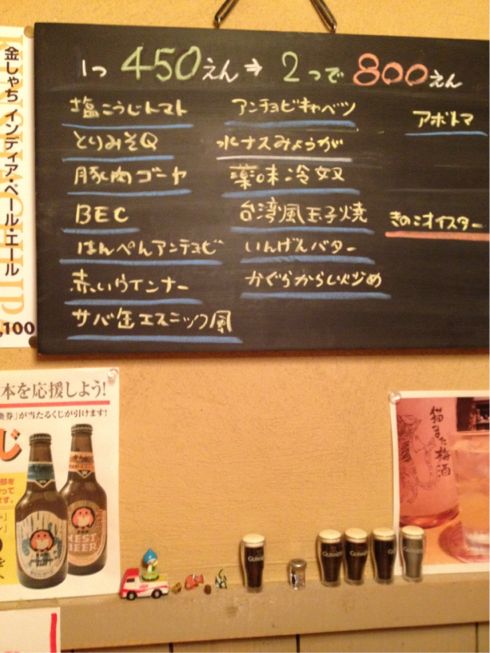 1つ 450えん ⇒ 2つで 800えん
塩こうじトマト
とりみそQ
豚肉ゴーヤ
BEC
はんぺんアンチョビ
赤いウインナー
サバ缶エスニック風
アンチョビキャベツ
水ナスみょうが
薬味冷奴
台湾風玉子焼
いんげんバター
かぐらからし炒め
アボトマ
きのこオイスター
金しゃち インディア・ペール・エール
,100
本を応援しよう!
券」が当たるくじが引けます!
じ
猫また梅酒
BEER